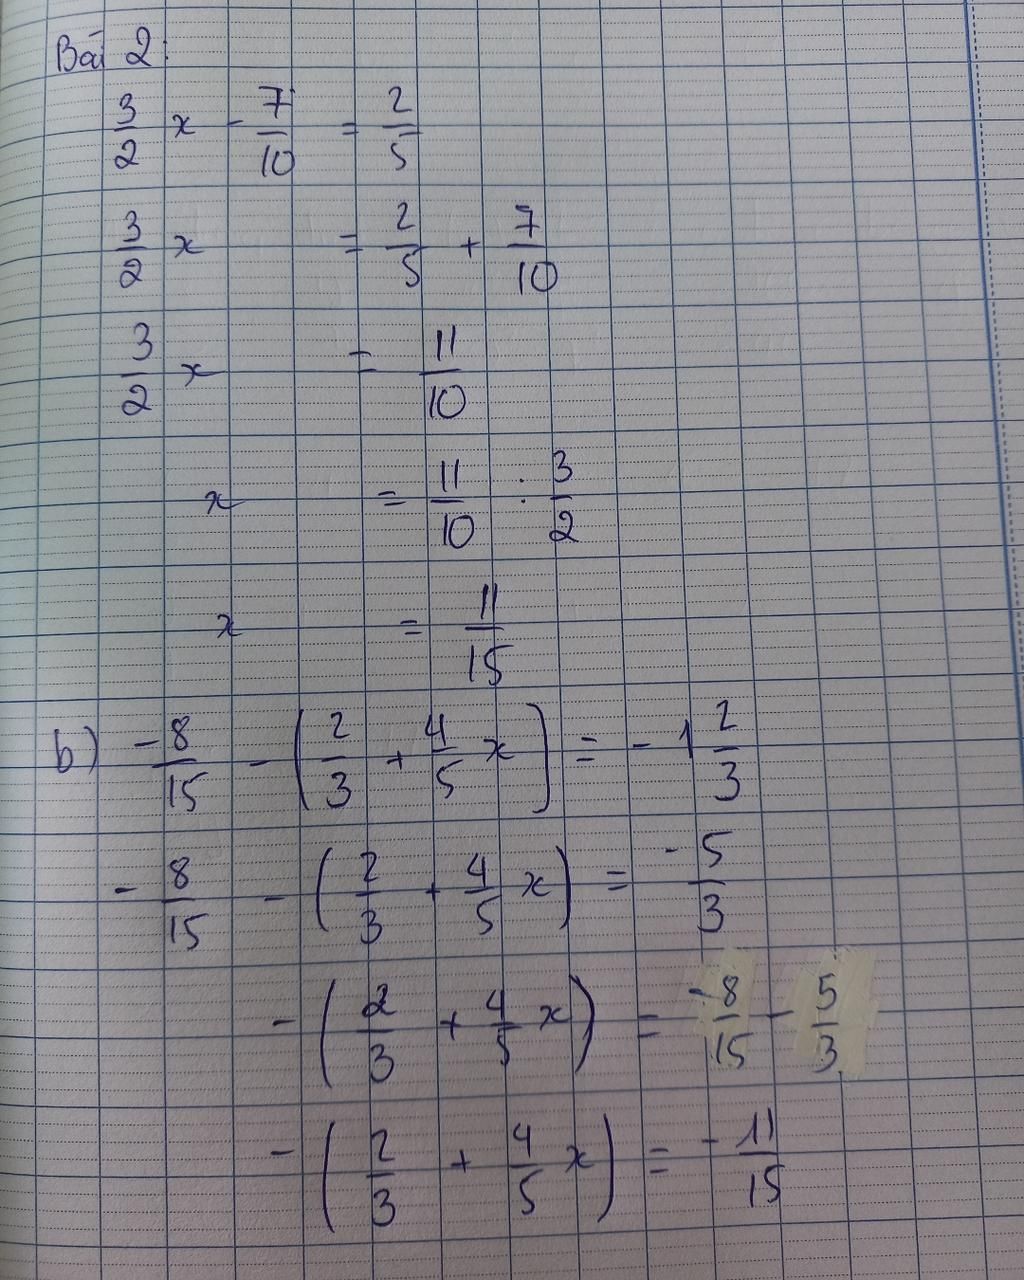 Bài 2:
3/2 x - 7/10 = 2/5
3/2 x = 2/5 + 7/10
3/2 x = 11/10
x = 11/10 : 3/2
x = 11/15
b) -8/15 - (2/3 + 4/5 x) = -1 2/3
-8/15 - (2/3 + 4/5 x) = -5/3
-(2/3 + 4/5 x) = -8/15 - 5/3
-(2/3 + 4/5 x) = -11/15